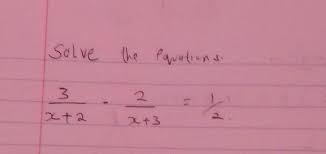 Solve the equations.
3/(x+2) - 2/(x+3) = 1/2.